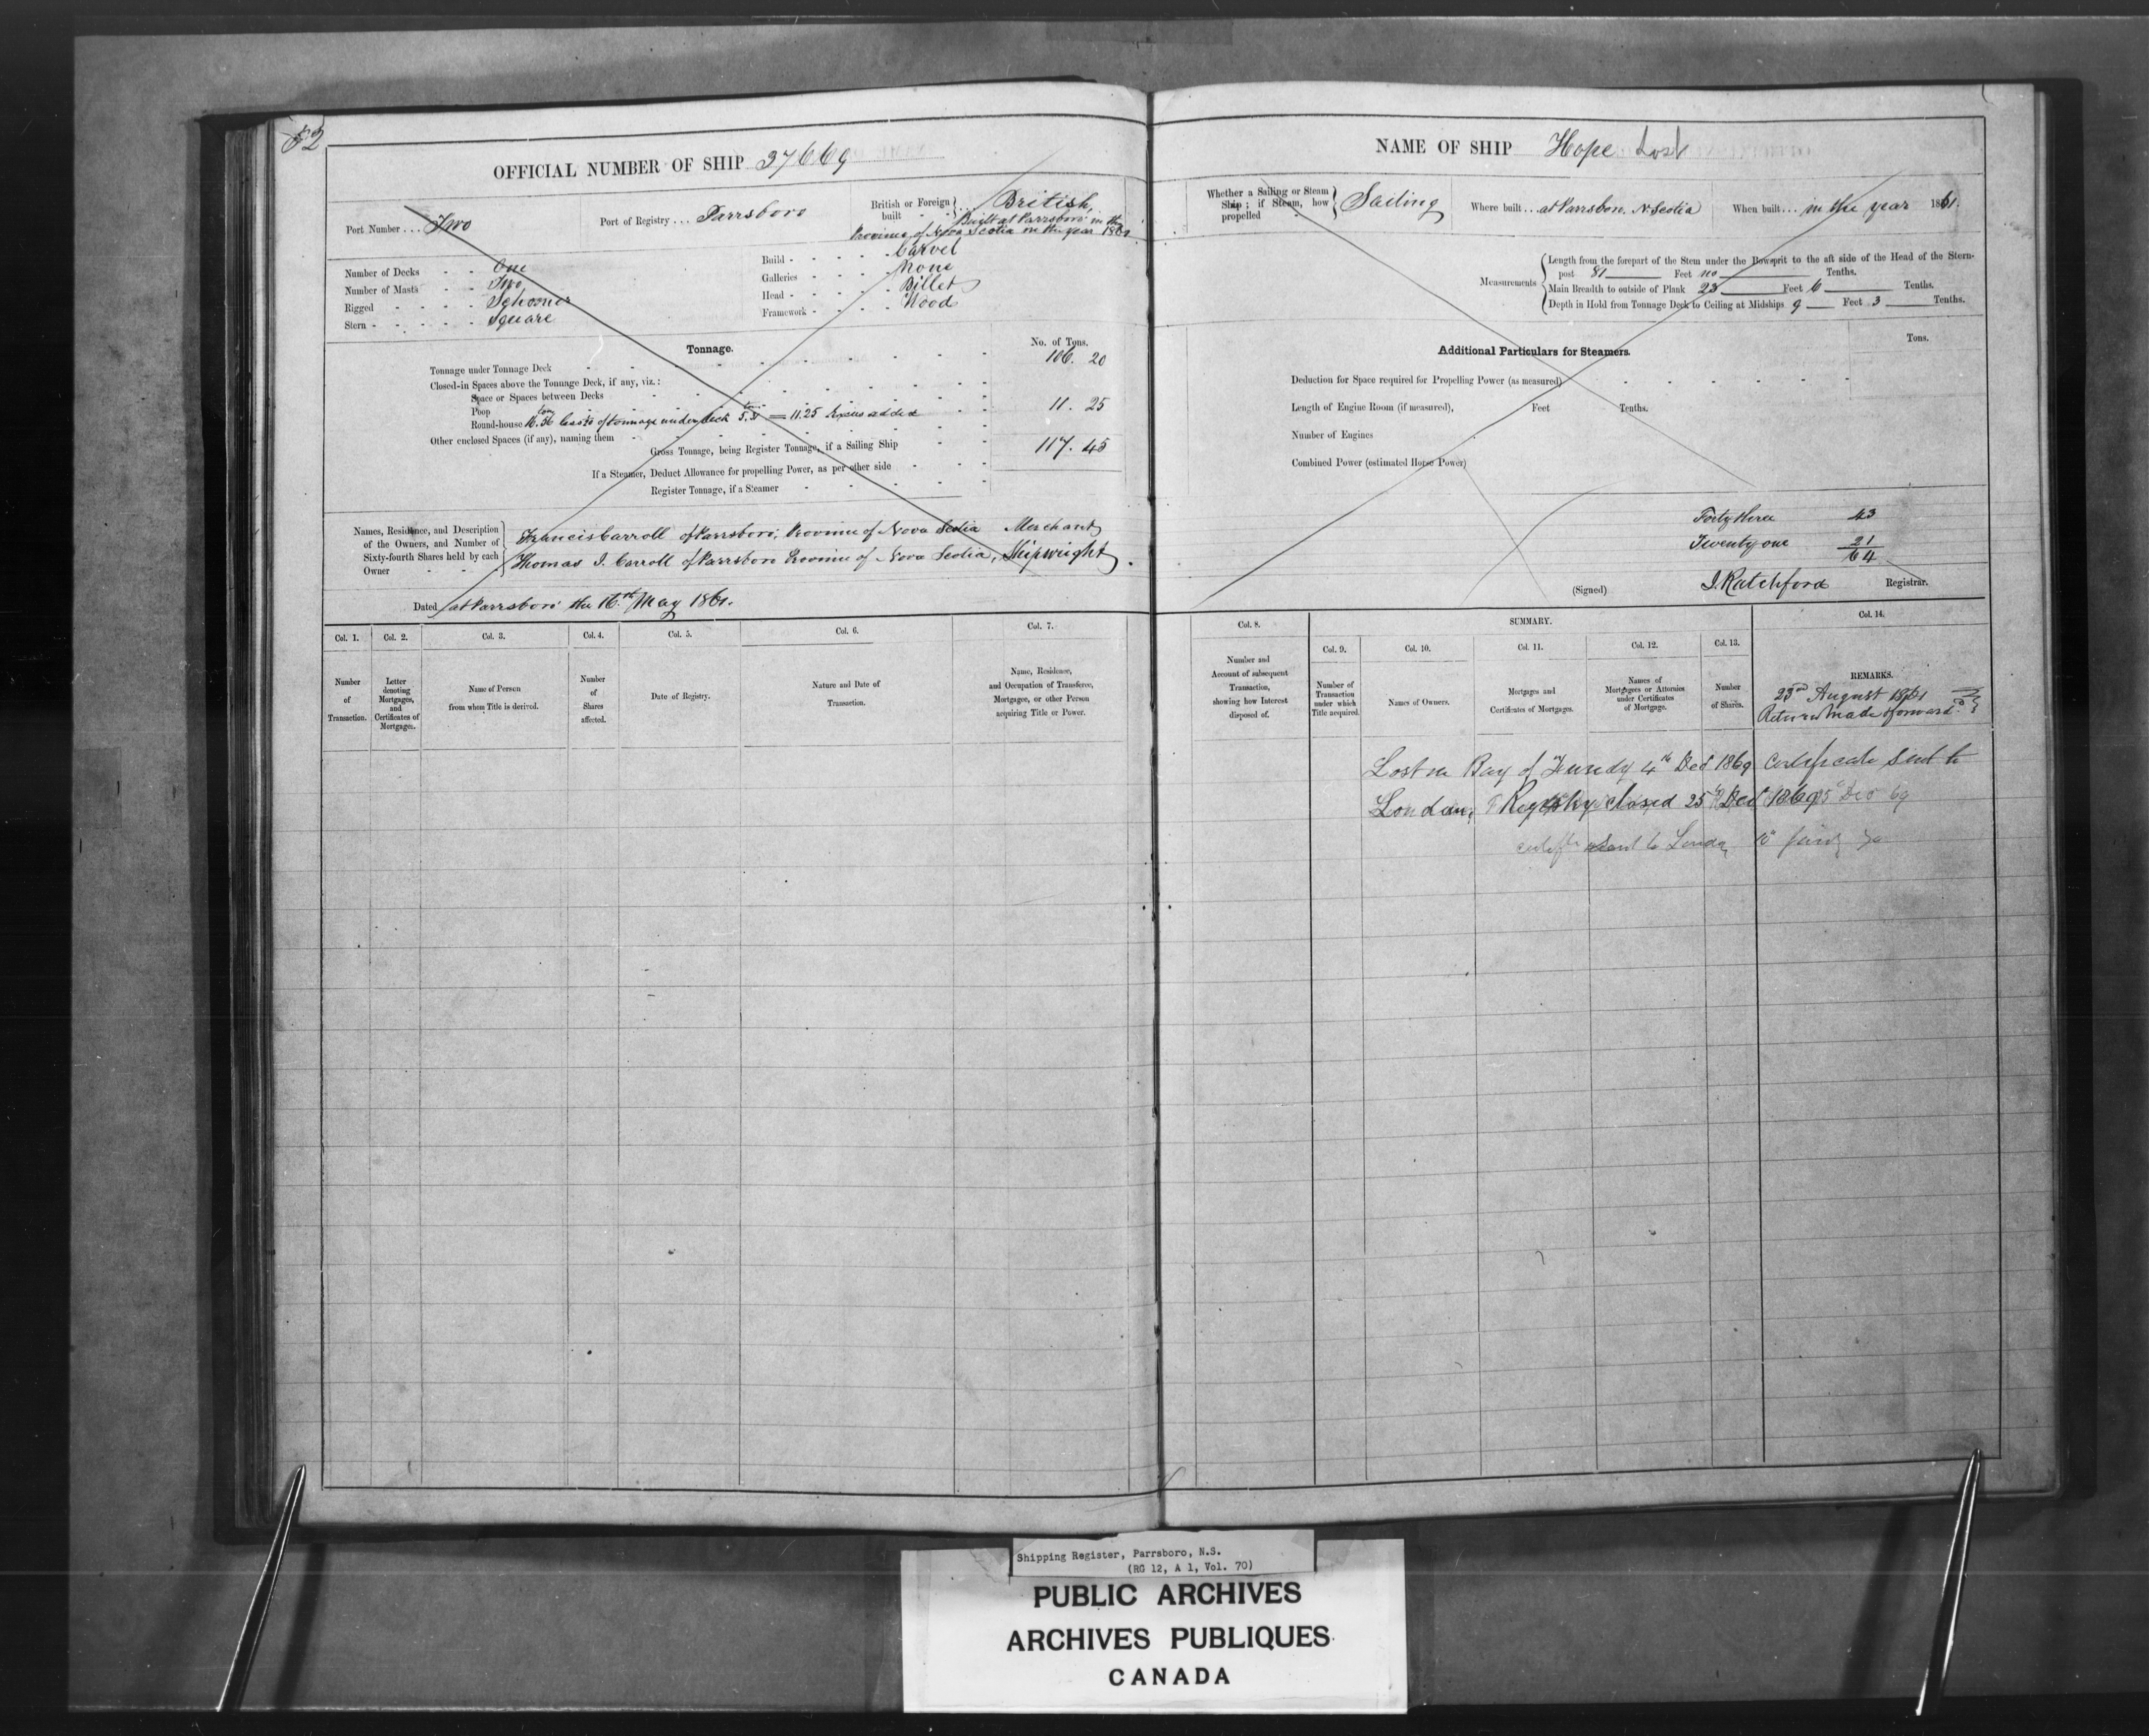 52
OFFICIAL NUMBER OF SHIP 37669
Port Number . . . Two
Port of Registry . . . Parrsboro
British or Foreign built - - British,
Built at Parrsboro' in the
Province of Nova Scotia in the year 1861
Number of Decks - - One
Number of Masts - - Two
Rigged - - - - Schooner
Stern - - - - - Square
Build - - - - - Carvel
Galleries - - - - None
Head - - - - - Billet
Framework - - - - Wood
Tonnage.
No. of Tons.
Tonnage under Tonnage Deck 106. 20
Closed-in Spaces above the Tonnage Deck, if any, viz.:
Space or Spaces between Decks
Poop
Round-house 16.56 less 5 of tonnage under deck 5.31 = 11.25 Excess added 11. 25
Other enclosed Spaces (if any), naming them
Gross Tonnage, being Register Tonnage, if a Sailing Ship 117. 45
If a Steamer, Deduct Allowance for propelling Power, as per other side
Register Tonnage, if a Steamer
Names, Residence, and Description of the Owners, and Number of Sixty-fourth Shares held by each Owner
Francis Carroll of Parrsboro; Province of Nova Scotia Merchant
Thomas I. Carroll of Parrsboro Province of Nova Scotia, Shipwright.
Dated at Parrsboro' the 16th May 1861.
Col. 1. Col. 2. Col. 3. Col. 4. Col. 5. Col. 6. Col. 7.
Number of Transaction.
Letter denoting Mortgages, and Certificates of Mortgages.
Name of Person from whom Title is derived.
Number of Shares affected.
Date of Registry.
Nature and Date of Transaction.
Name, Residence, and Occupation of Transferee, Mortgagee, or other Person acquiring Title or Power.
NAME OF SHIP Hope Lost
Whether a Sailing or Steam Ship; if Steam, how propelled - Sailing
Where built . . . at Parrsboro, N. Scotia
When built . . . in the year 1861.
Measurements
Length from the forepart of the Stem under the Bowsprit to the aft side of the Head of the Stern-
post 81 Feet no Tenths.
Main Breadth to outside of Plank 23 Feet 6 Tenths.
Depth in Hold from Tonnage Deck to Ceiling at Midships 9 Feet 3 Tenths.
Additional Particulars for Steamers.
Tons.
Deduction for Space required for Propelling Power (as measured)
Length of Engine Room (if measured), Feet Tenths.
Number of Engines
Combined Power (estimated Horse Power)
Forty three 43
Twenty one 21
64
(Signed) J. Ratchford Registrar.
Col. 8. SUMMARY. Col. 14.
Col. 9. Col. 10. Col. 11. Col. 12. Col. 13.
Number and Account of subsequent Transaction, showing how Interest disposed of.
Number of Transaction under which Title acquired.
Names of Owners.
Mortgages and Certificates of Mortgages.
Names of Mortgagees or Attornies under Certificates of Mortgage.
Number of Shares.
REMARKS.
23rd August 1861
Return made & forward
Lost in Bay of Fundy 4th Dec 1869 Certificate sent to
London, & Registry closed 25th Dec 1869
sent to London 10
Shipping Register, Parrsboro, N.S.
(RG 12, A 1, Vol. 70)
PUBLIC ARCHIVES
ARCHIVES PUBLIQUES
CANADA